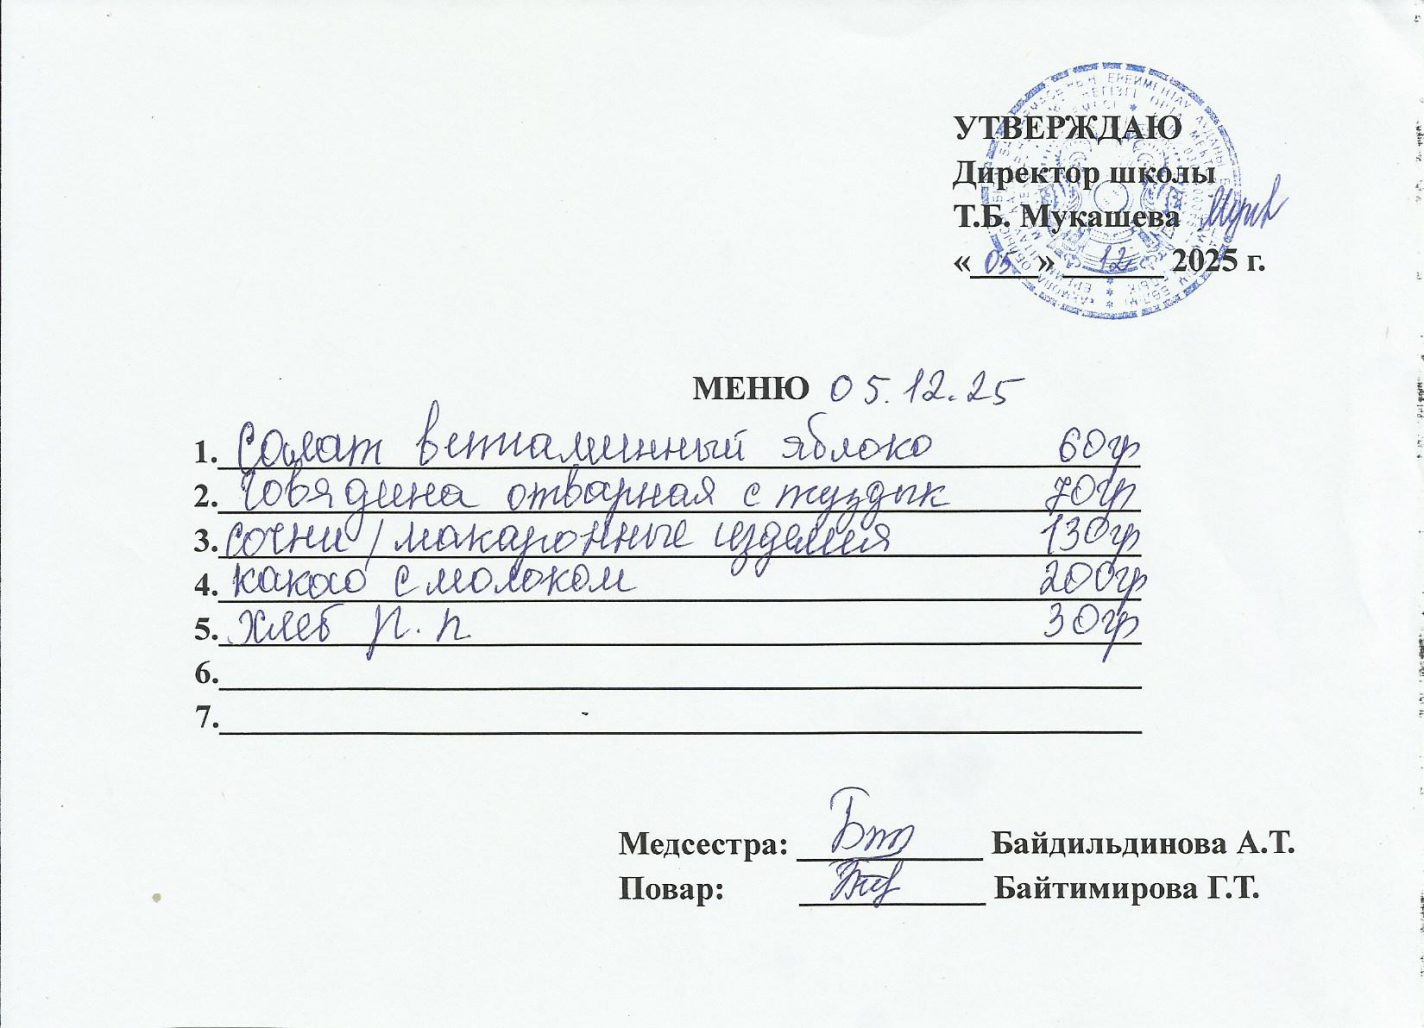 УТВЕРЖДАЮ
Директор школы
Т.Б. Мукашева
«05» 12 2025 г.
МЕНЮ 05.12.25
1. Салат витаминный яблоко 60гр
2. Говядина отварная с туздык 70гр
3. сочни / макаронные изделия 130гр
4. какао с молоком 200гр
5. хлеб р.п 30гр
6.
7.
Медсестра: Байдильдинова А.Т.
Повар: Байтимирова Г.Т.